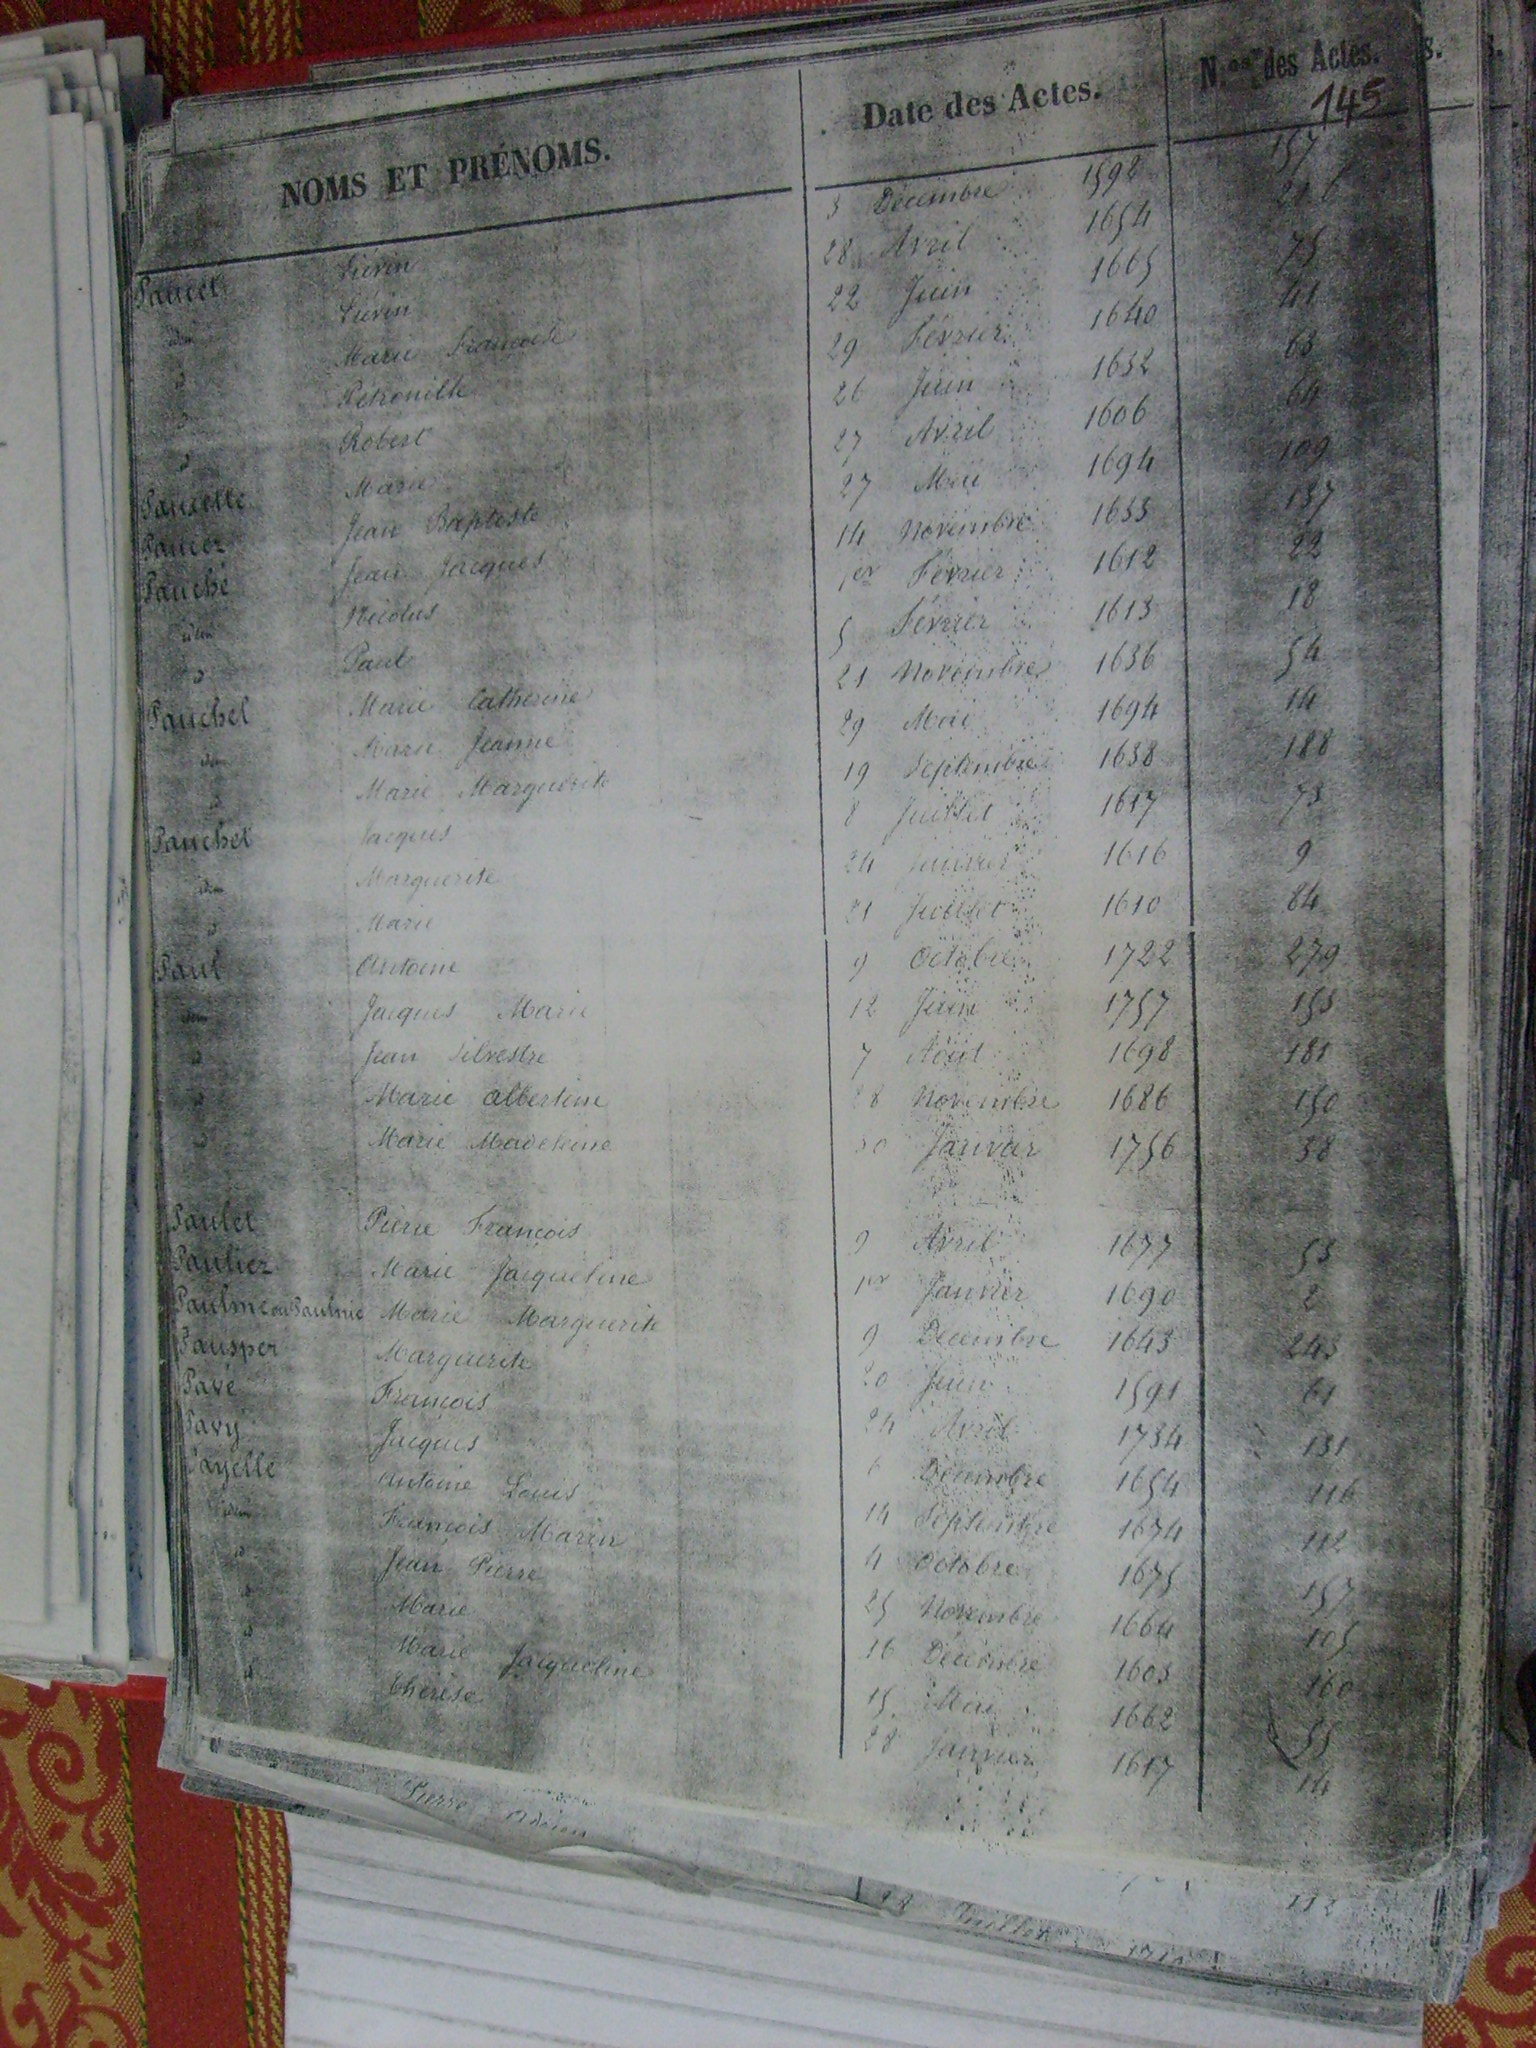 NOMS ET PRÉNOMS. Date des Actes. N.os des Actes. s. s.
145
Paucet Liévin 3 Décembre 1592 157
idem Liévin 28 Avril 1654 216
d Marie Françoise 22 Juin 1665 75
d Pétronille 29 Février 1640 41
d Robert 26 Juin 1632 63
Paucelle Marie 27 Avril 1606 64
Paucez Jean Baptiste 27 Mai 1694 109
Pauché Jean Jacques 14 Novembre 1633 137
idem Nicolas 1er Février 1612 22
d Paul 5 Février 1613 18
Pauchel Marie Catherine 21 Novembre 1636 54
idem Marie Jeanne 29 Mai 1694 14
d Marie Marguerite 19 Septembre 1638 188
Pauchet Jacques 8 Juillet 1617 73
idem Marguerite 24 Janvier 1616 9
d Marie 21 Juillet 1610 84
Paul Antoine 9 Octobre 1722 279
idem Jacques Marie 12 Juin 1757 153
d Jean Silvestre 7 Août 1698 181
d Marie Albertine 28 Novembre 1686 150
d Marie Madeleine 30 Janvier 1756 38
Paulet Pierre François 9 Avril 1677 53
Pauliez Marie Jacqueline 1er Janvier 1690 2
Paulme ou Paulmie Marie Marguerite 9 Décembre 1643 243
Pausper Marguerite 20 Juin 1591 61
Pavé François 24 Avril 1734 131
Pavy Jacques 6 Décembre 1654 116
Payelle Antoine Louis 14 Septembre 1674 112
idem François Marin 4 Octobre 1675 157
d Jean Pierre 25 Novembre 1664 105
d Marie 16 Décembre 1603 160
d Marie Jacqueline 15 Mai 1662 55
d Thérèse 28 Janvier 1617 14
Pierre Adrien 112
28 Juillet